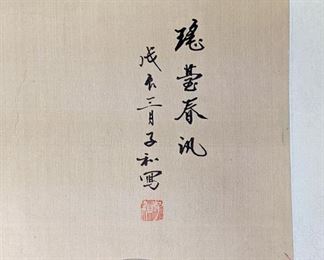 瑤臺春汛
戊辰三月子和寫